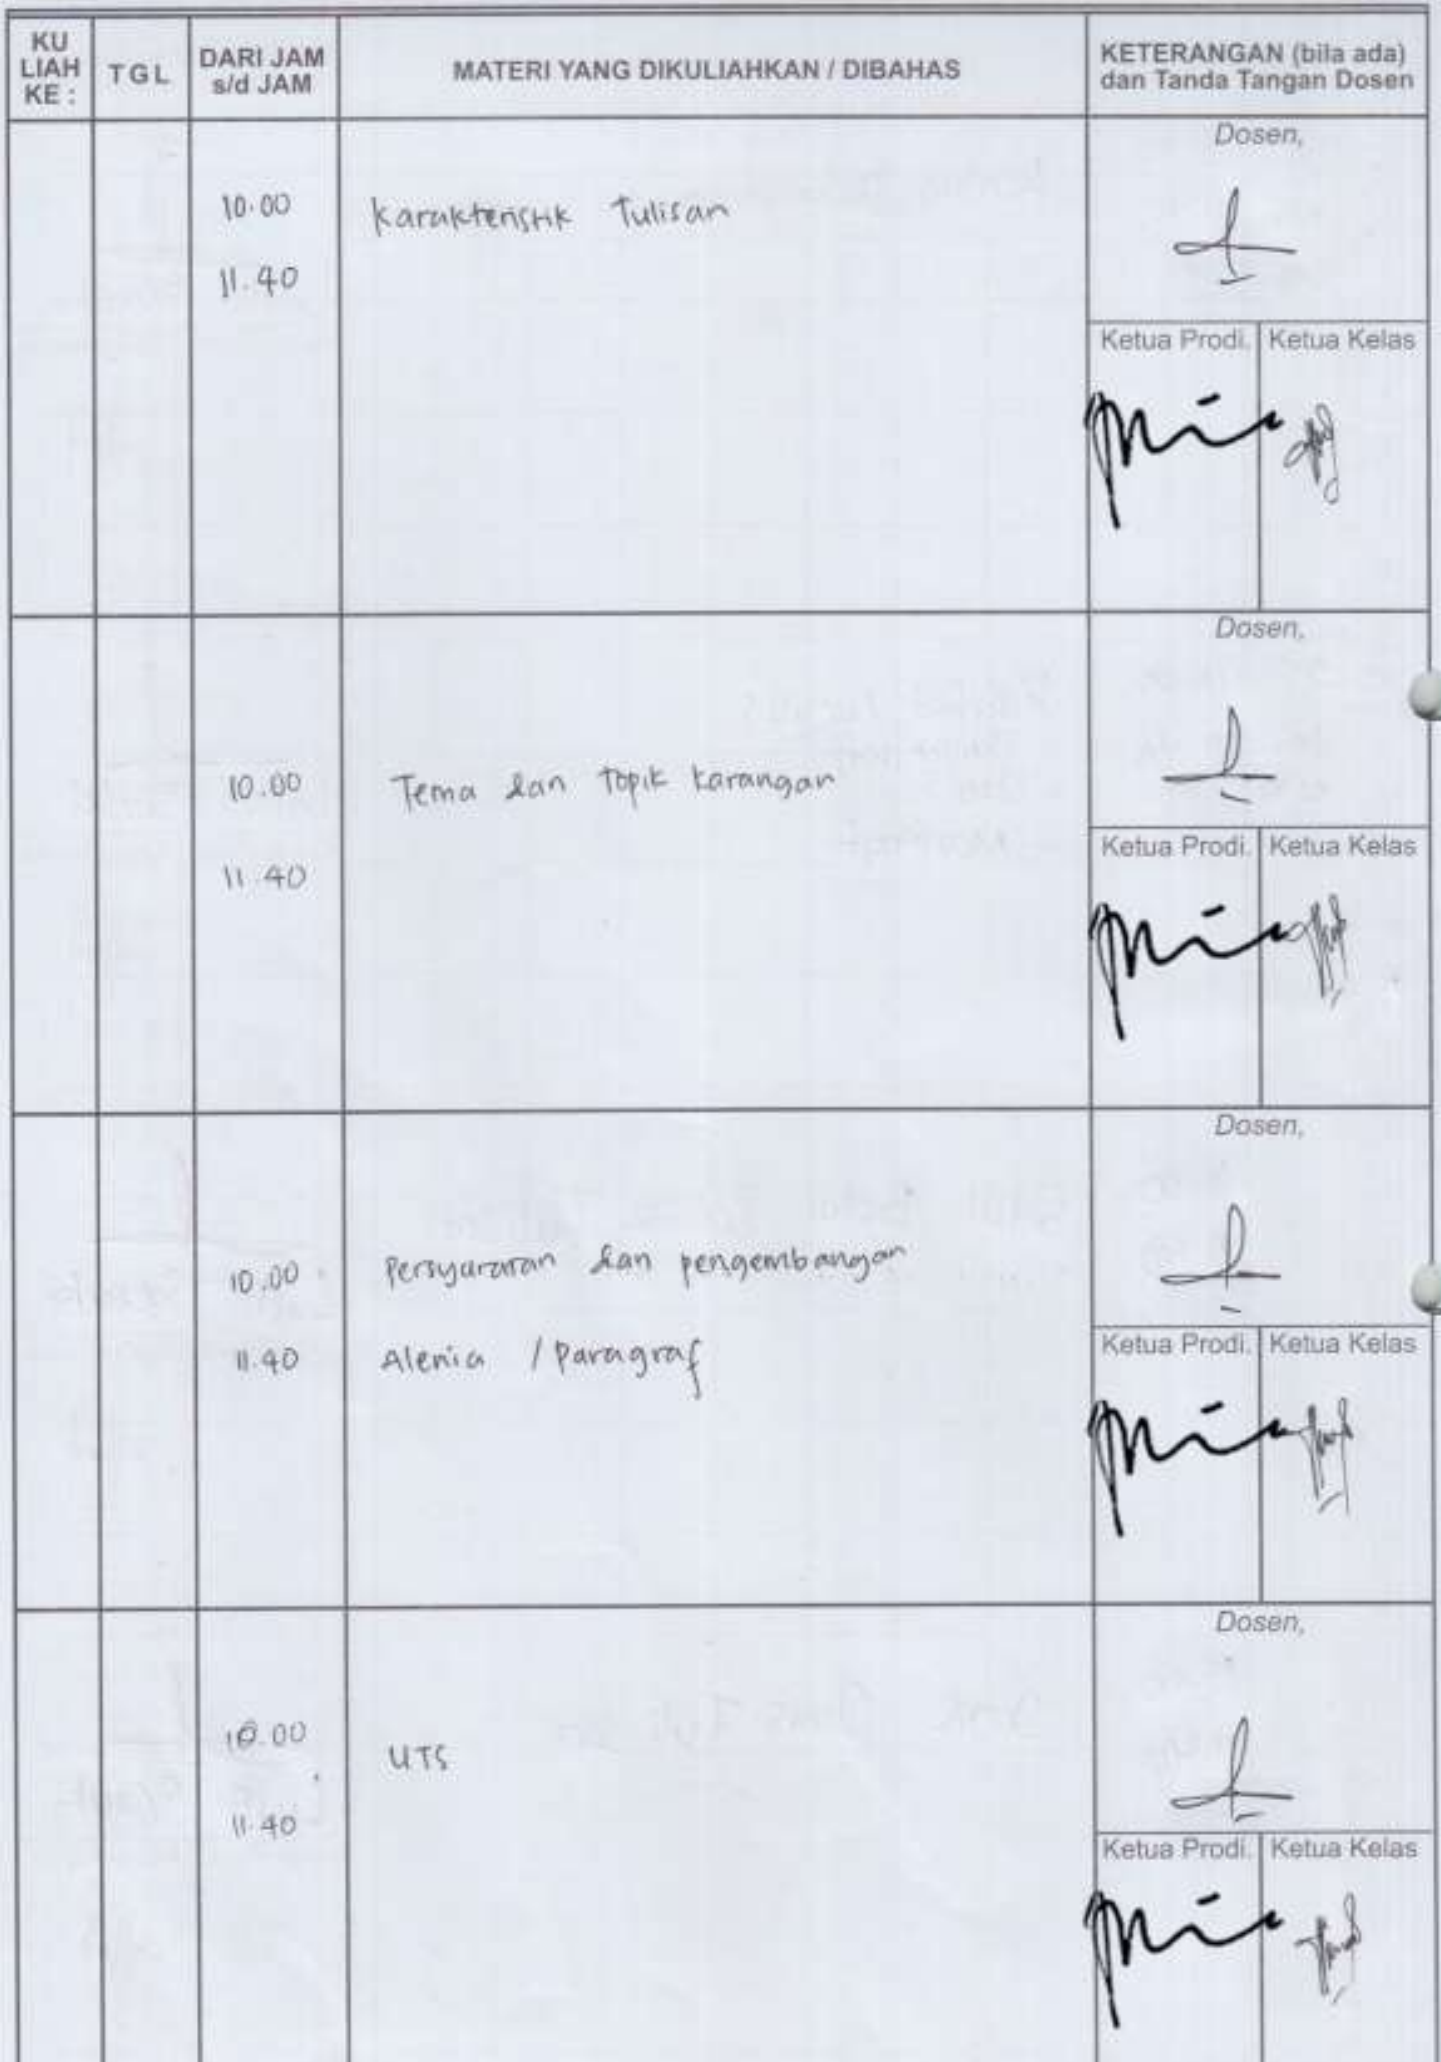 KU LIAH KE :
TGL
DARI JAM s/d JAM
MATERI YANG DIKULIAHKAN / DIBAHAS
KETERANGAN (bila ada)
dan Tanda Tangan Dosen
Dosen,
10.00
Karakteristik Tulisan
11.40
Ketua Prodi. Ketua Kelas
Dosen,
10.00
Tema dan Topik karangan
11.40
Ketua Prodi. Ketua Kelas
Dosen,
10.00
Persyararan dan pengembangan
11.40
Alenia / Paragraf
Ketua Prodi. Ketua Kelas
Dosen,
10.00
UTS
11.40
Ketua Prodi. Ketua Kelas